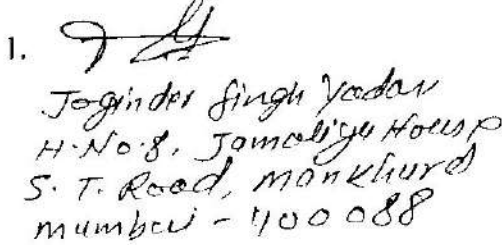 1.
Joginder Singh Yadav
H.No.8, Jamaliya House
S. T. Road, Mankhurd
Mumbai - 400 088